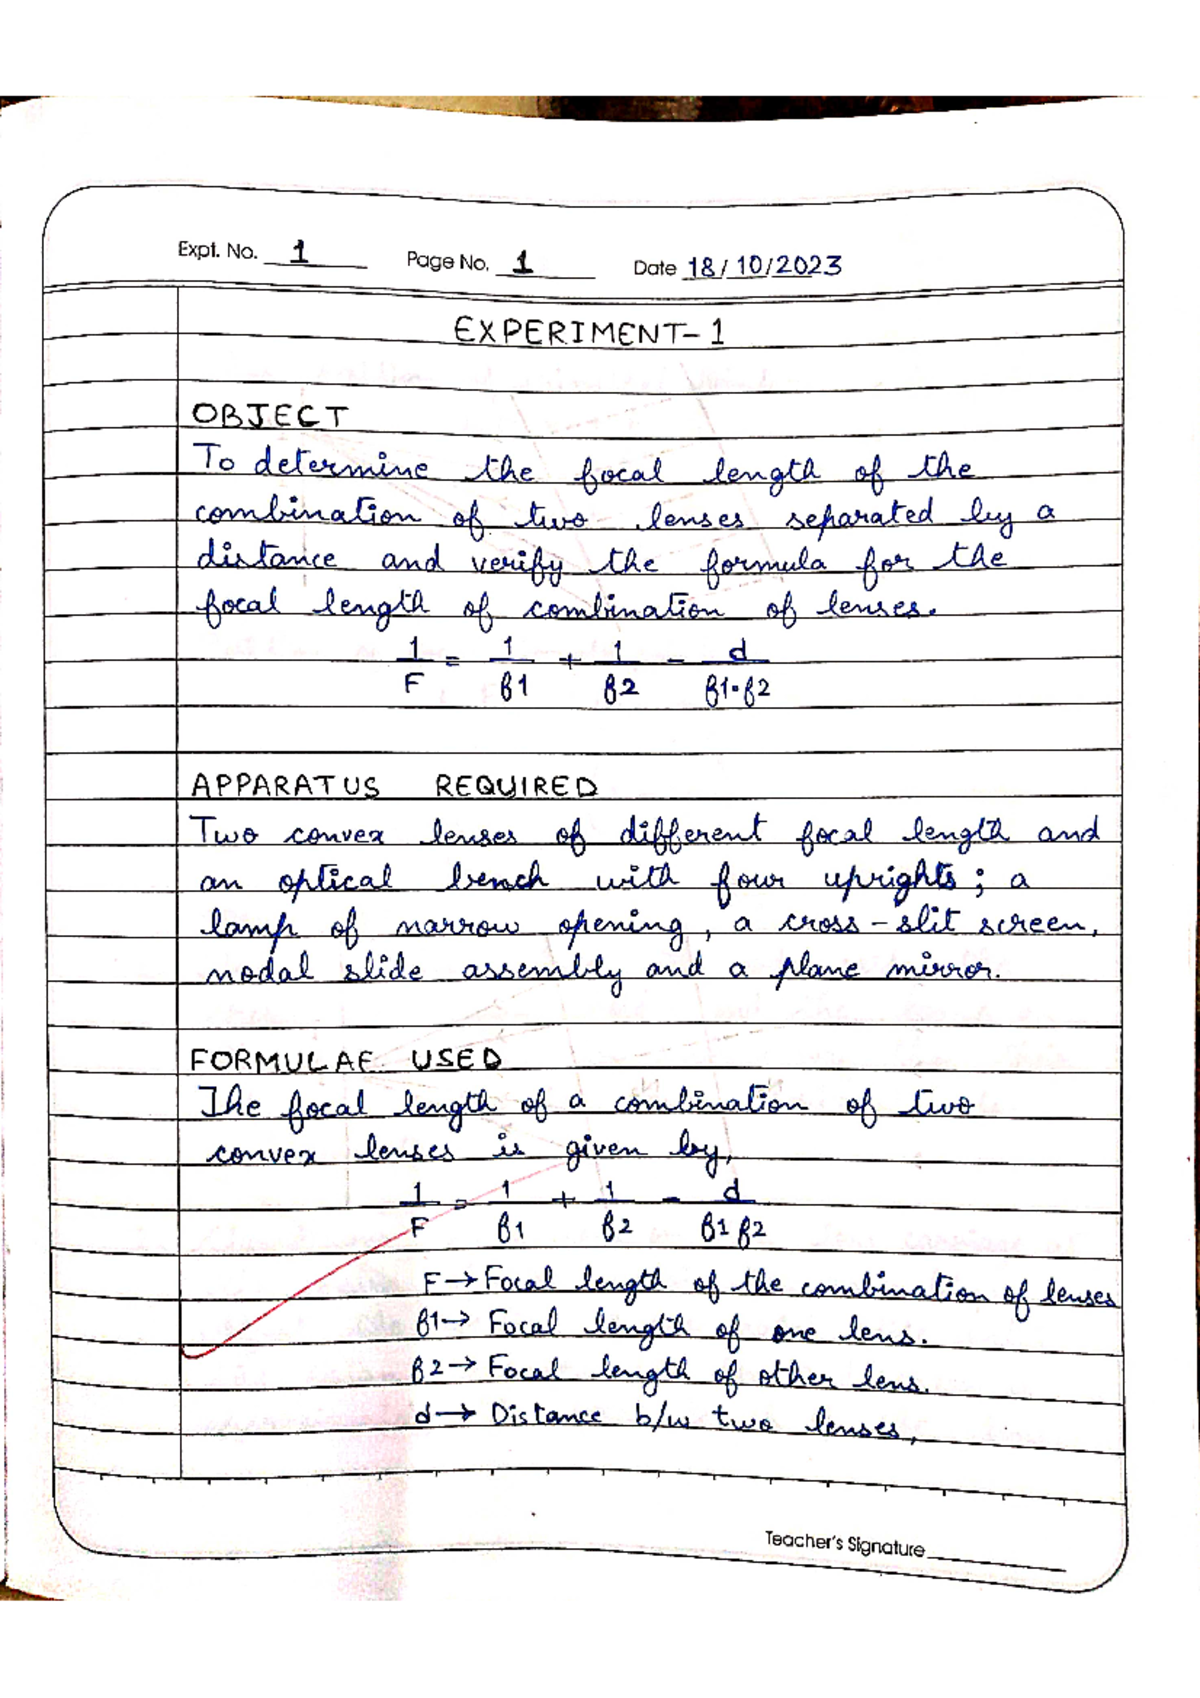 Expt. No. 1 Page No. 1 Date 18/10/2023
EXPERIMENT-1
OBJECT
To determine the focal length of the
combination of two lenses separated by a
distance and verify the formula for the
focal length of combination of lenses.
1/F = 1/f1 + 1/f2 - d/f1·f2
APPARATUS REQUIRED
Two convex lenses of different focal length and
an optical bench with four uprights; a
lamp of narrow opening, a cross-slit screen,
nodal slide assembly and a plane mirror.
FORMULAE USED
The focal length of a combination of two
convex lenses is given by,
1/F = 1/f1 + 1/f2 - d/f1 f2
F→Focal length of the combination of lenses
f1→ Focal length of one lens.
f2→ Focal length of other lens.
d→ Distance b/w two lenses,
Teacher's Signature